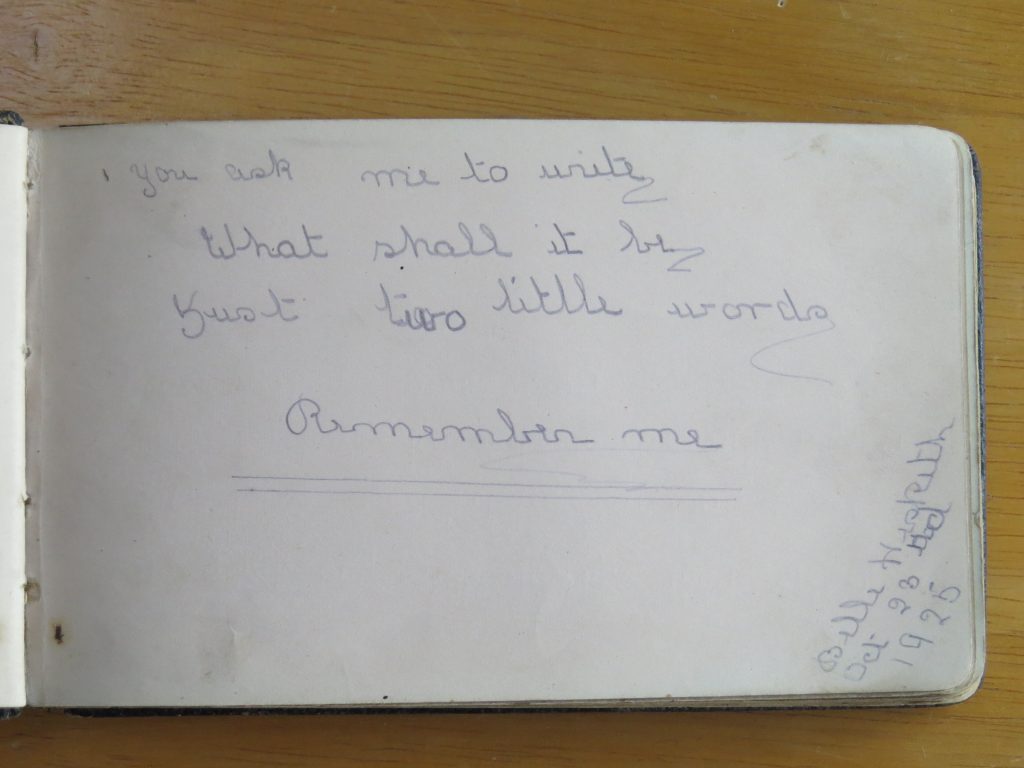 you ask me to write
What shall it be
Just two litlle words
Remember me
Oct 23rd
1925